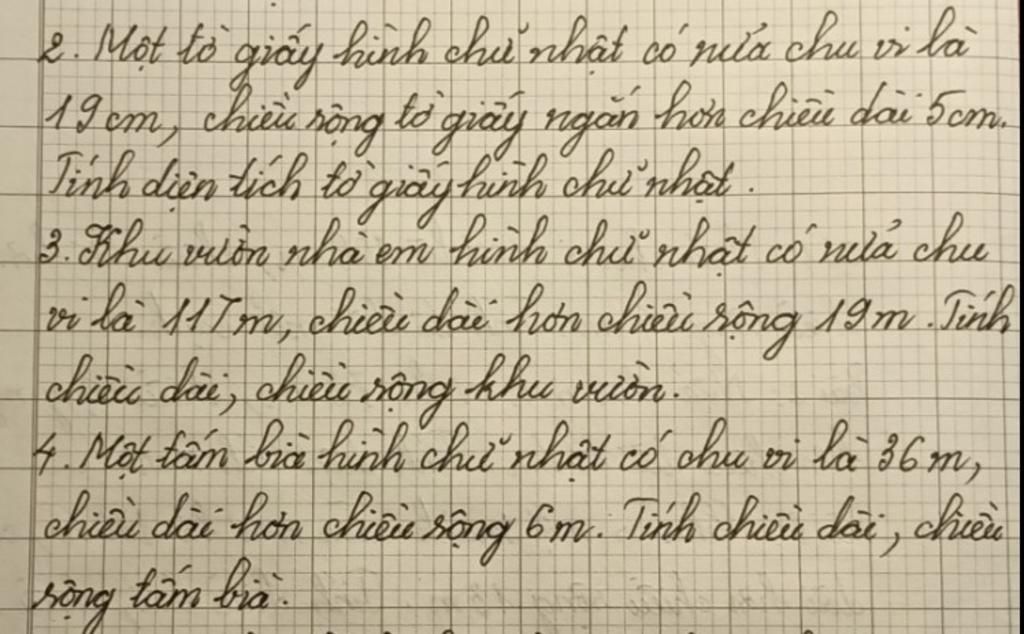 2. Một tờ giấy hình chữ nhật có nửa chu vi là
19cm, chiều rộng tờ giấy ngắn hơn chiều dài 5cm.
Tính diện tích tờ giấy hình chữ nhật.
3. Khu vườn nhà em hình chữ nhật có nửa chu
vi là 117m, chiều dài hơn chiều rộng 19m. Tính
chiều dài, chiều rộng khu vườn.
4. Một tấm bìa hình chữ nhật có chu vi là 36m,
chiều dài hơn chiều rộng 6m. Tính chiều dài, chiều
rộng tấm bìa.